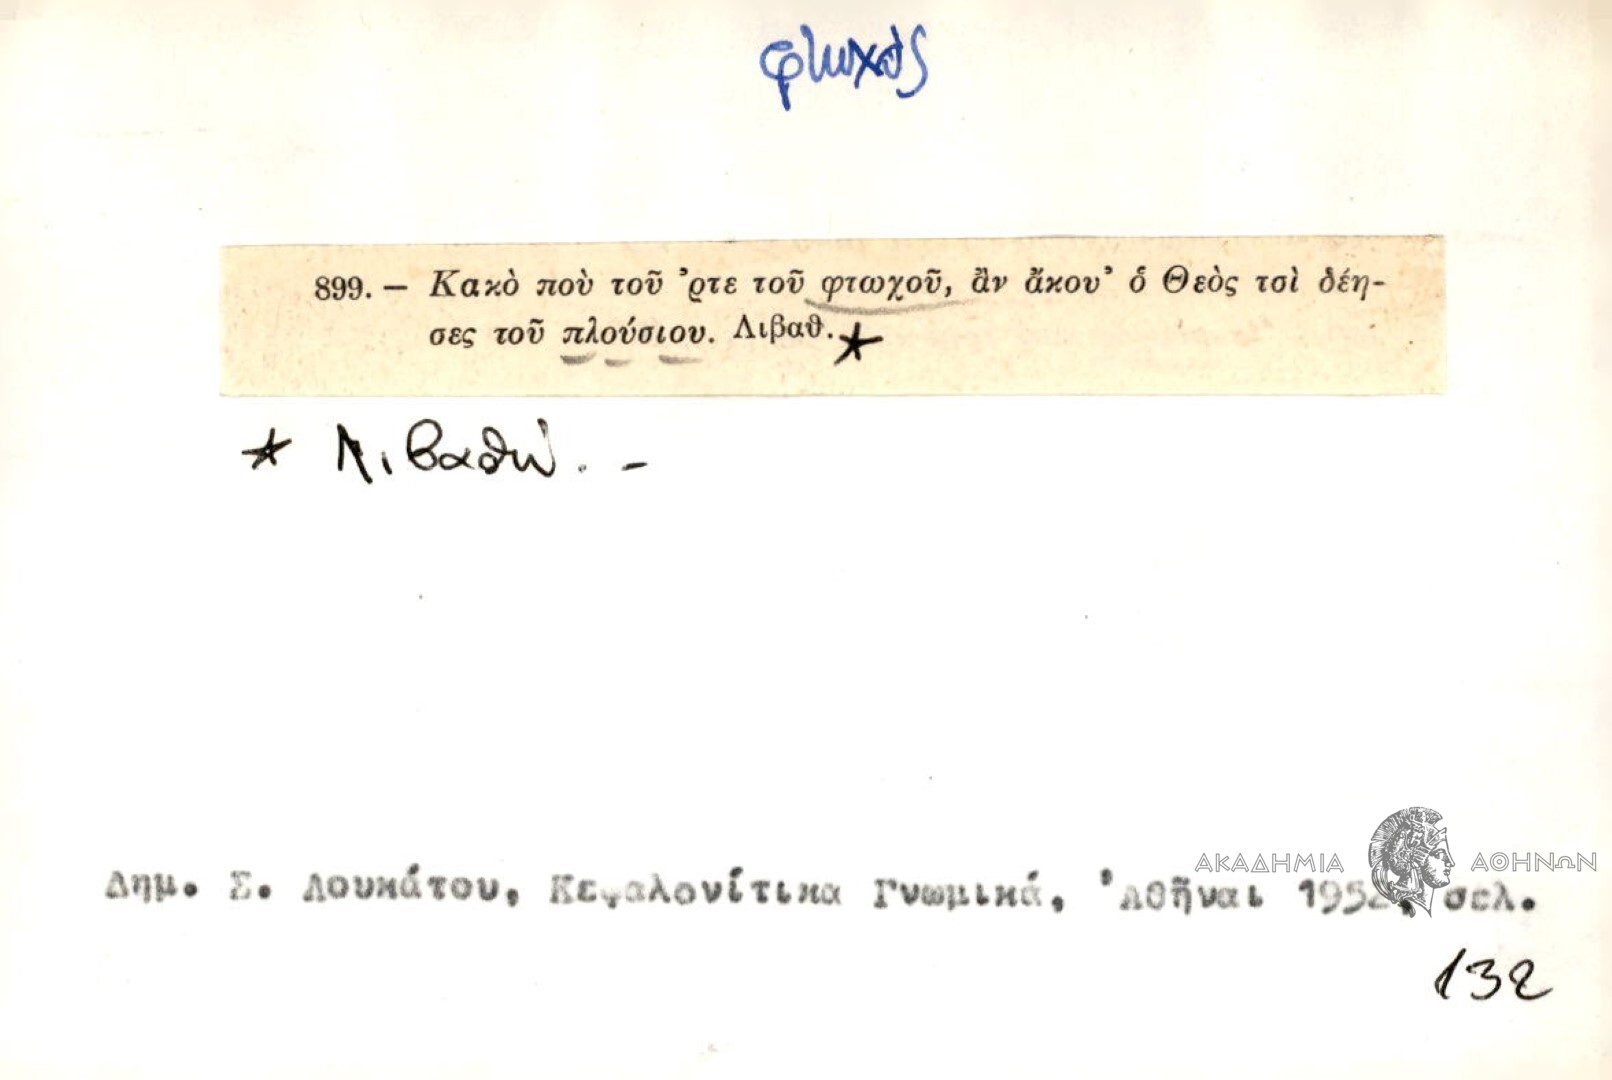 φτωχὸς
899. — Κακὸ ποὺ τοῦ ᾿ρτε τοῦ φτωχοῦ, ἂν ἄκου᾿ ὁ Θεὸς τσὶ δέη-
σες τοῦ πλούσιου. Λιβαθ. *
* Λιβαθώ. -
ΑΚΑΔΗΜΙΑ ΑΘΗΝΩΝ
Δημ. Σ. Λουκάτου, Κεφαλονίτικα Γνωμικά, Ἀθῆναι 1952, σελ.
132